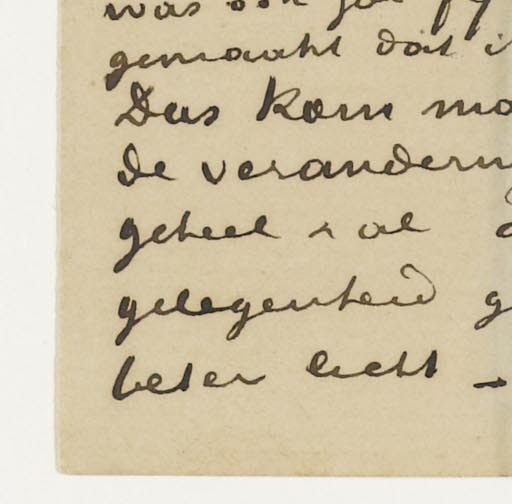 was ook
gemaakt dat i
Dus kom mo
de verandering
geheel zal
gelegenheid g
beter licht –